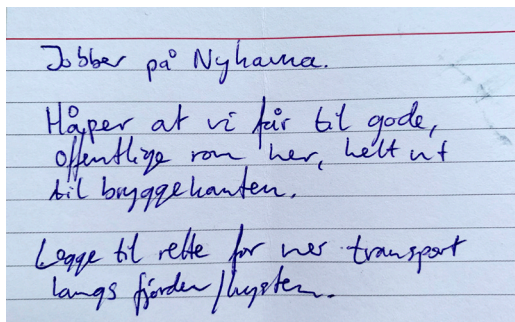 Jobber på Nyhavna.
Håper at vi får til gode,
offentlige rom her, helt ut
til bryggekanten.
Legge til rette for mer transport
langs fjorden/kysten.